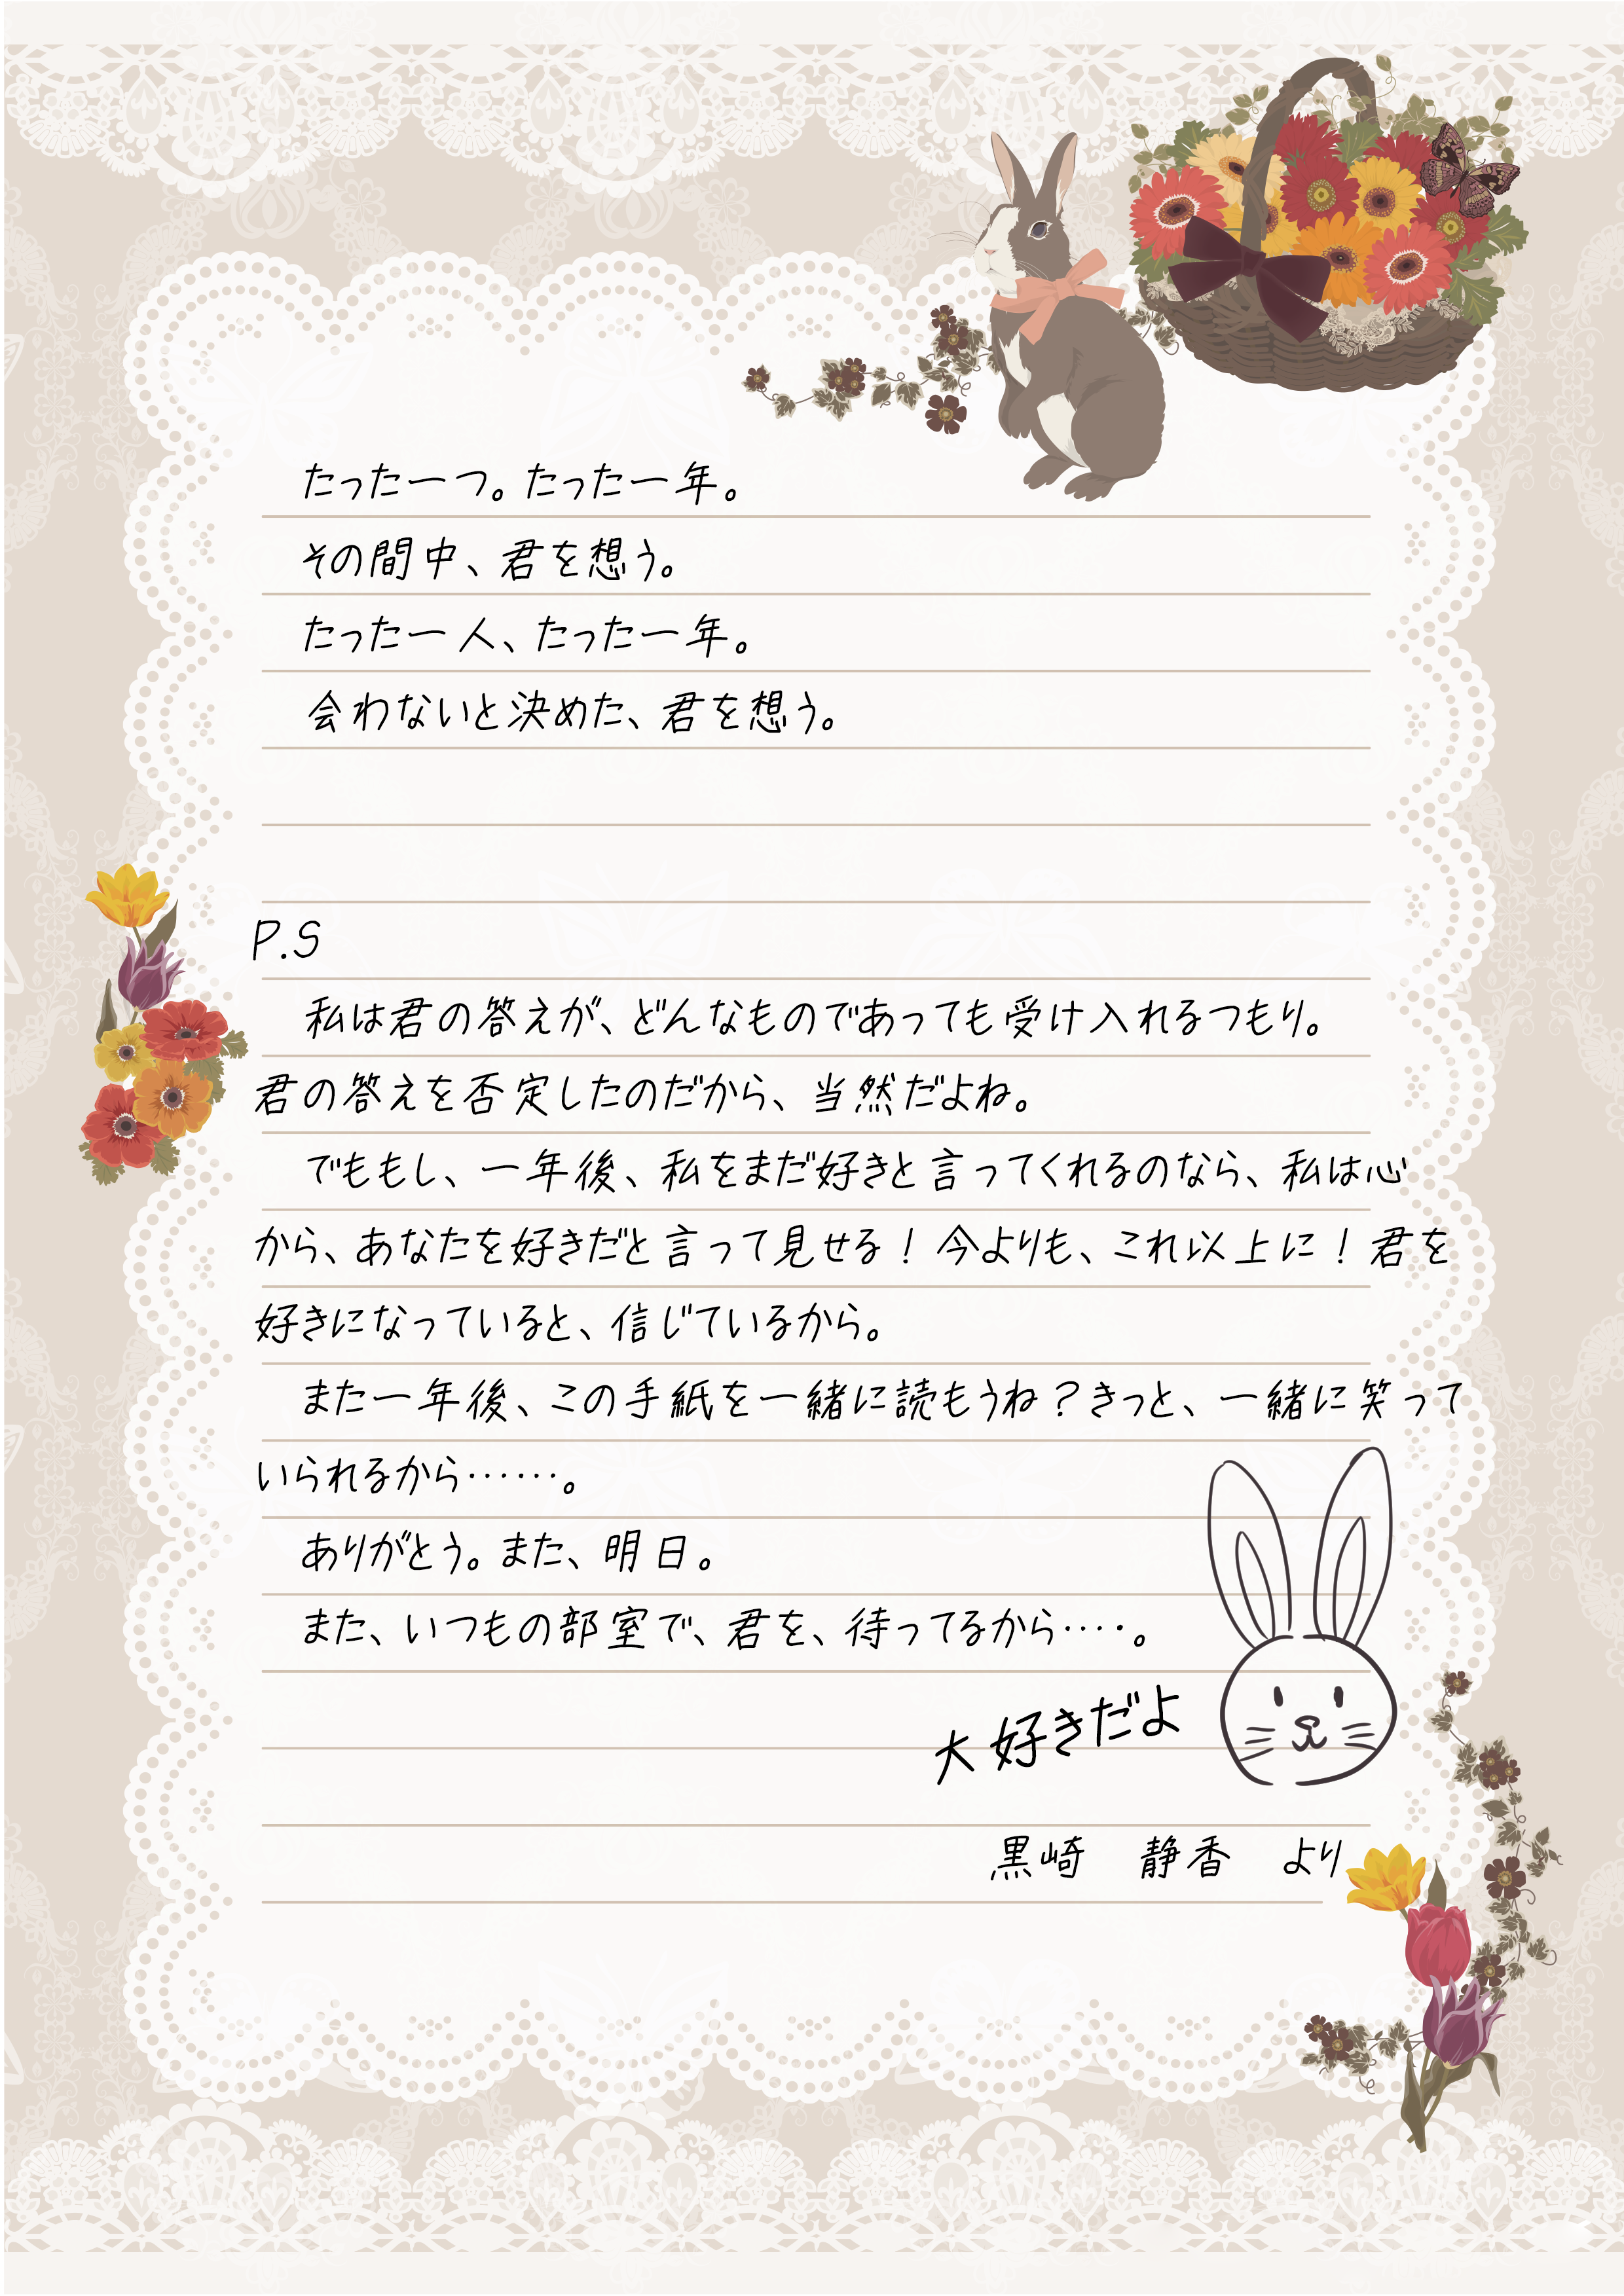 たった一つ。たった一年。
その間中、君を想う。
たった一人、たった一年。
会わないと決めた、君を想う。
P.S
私は君の答えが、どんなものであっても受け入れるつもり。
君の答えを否定したのだから、当然だよね。
でももし、一年後、私をまだ好きと言ってくれるのなら、私は心
から、あなたを好きだと言って見せる！今よりも、これ以上に！君を
好きになっていると、信じているから。
また一年後、この手紙を一緒に読もうね？きっと、一緒に笑って
いられるから……。
ありがとう。また、明日。
また、いつもの部室で、君を、待ってるから‥‥。
大好きだよ
黒崎　静香　より